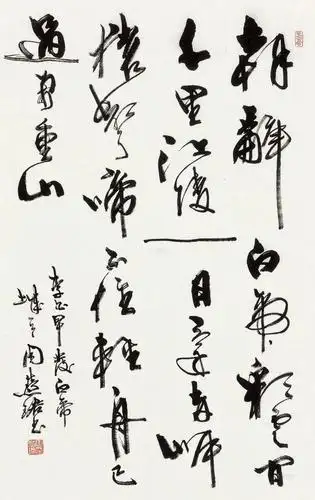 朝辭白帝彩雲間
千里江陵一日還兩岸
猿聲啼不住輕舟已
過萬重山
李白早發白帝
城 周慧珺書